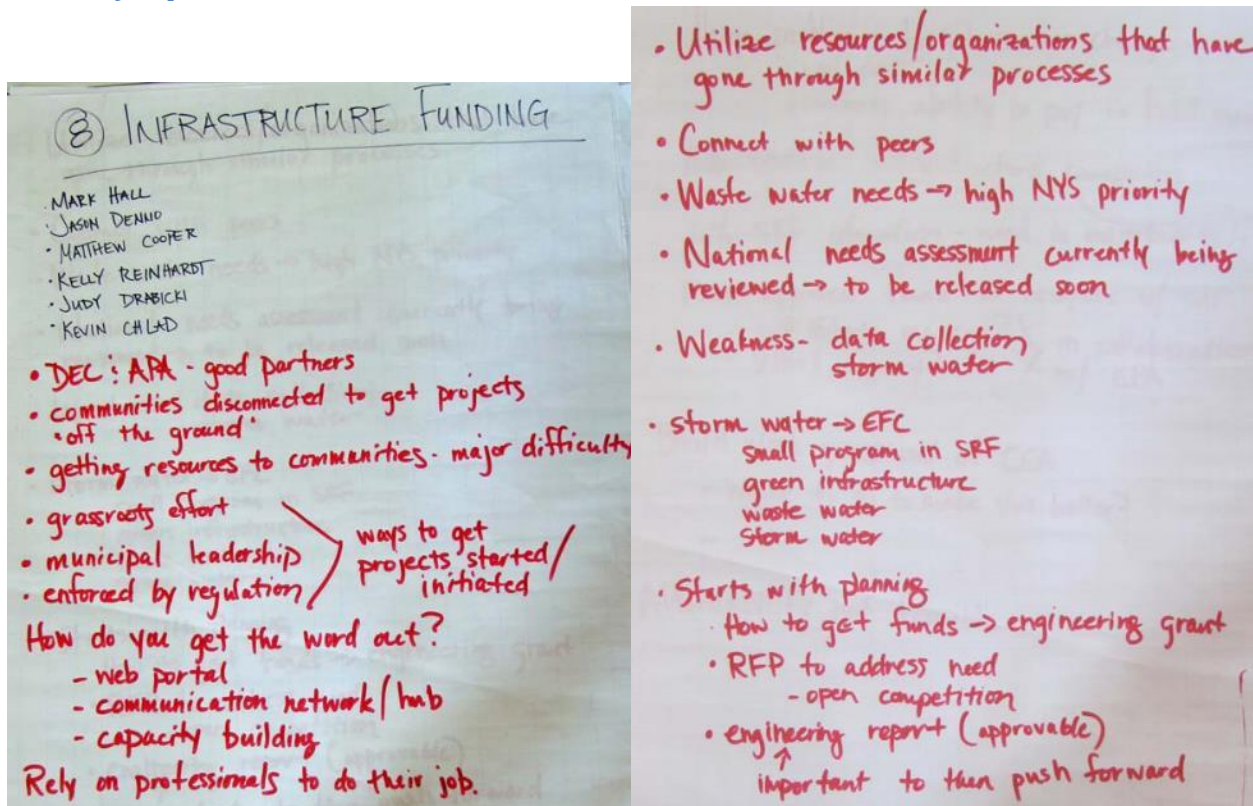 8 INFRASTRUCTURE FUNDING
· MARK HALL
· JASON DENNO
· MATTHEW COOPER
· KELLY REINHARDT
· JUDY DRABICKI
· KEVIN CHLAD
• DEC : APA - good partners
• communities disconnected to get projects
"off the ground"
• getting resources to communities - major difficulty
• grassroots effort
• municipal leadership
• enforced by regulation
ways to get
projects started/
initiated
How do you get the word out?
- web portal
- communication network/hub
- capacity building
Rely on professionals to do their job.
• Utilize resources/organizations that have
gone through similar processes
• Connect with peers
• Waste water needs → high NYS priority
• National needs assessment currently being
reviewed → to be released soon
• Weakness - data collection
storm water
• Storm water → EFC
small program in SRF
green infrastructure
waste water
storm water
• Starts with planning
· How to get funds → engineering grant
• RFP to address need
- open competition
• engineering report (approvable)
↑
important to then push forward